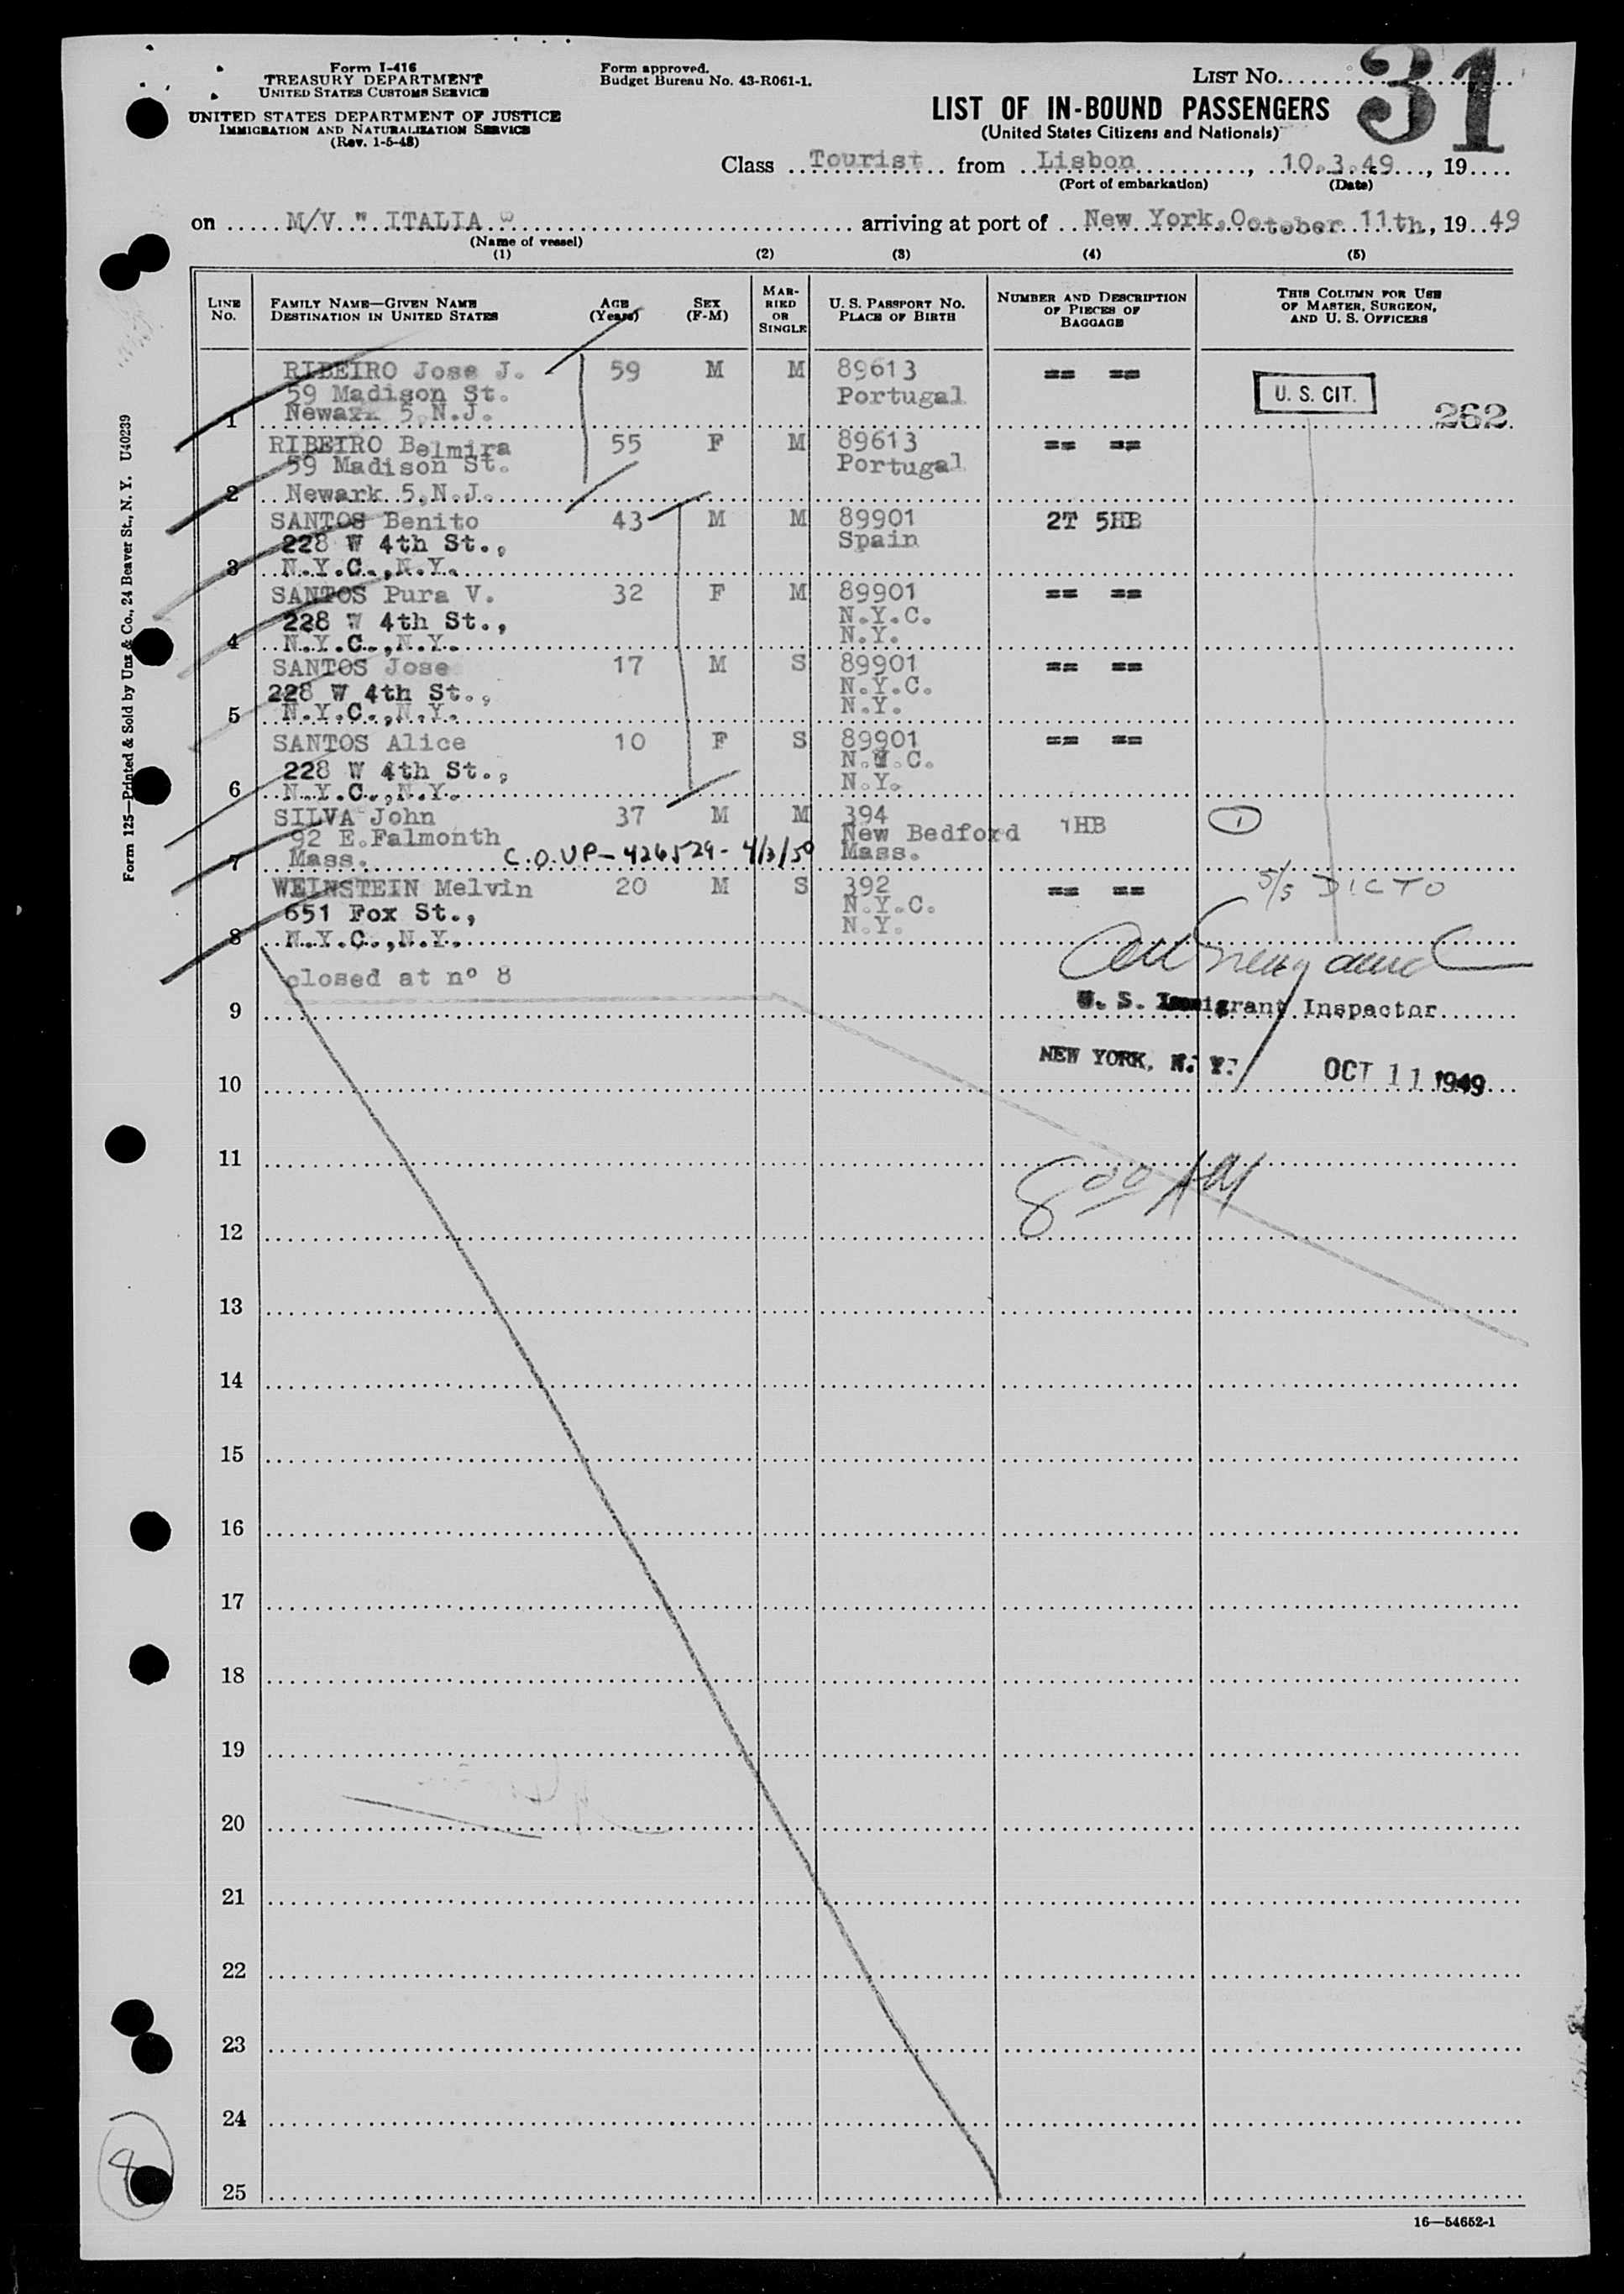 Form I-416
TREASURY DEPARTMENT
UNITED STATES CUSTOMS SERVICE
UNITED STATES DEPARTMENT OF JUSTICE
IMMIGRATION AND NATURALIZATION SERVICE
(Rev. 1-5-48)
Form approved.
Budget Bureau No. 43-R061-1.
LIST No. 31
LIST OF IN-BOUND PASSENGERS
(United States Citizens and Nationals)
Class Tourist from Lisbon, 10.3.49, 19
(Port of embarkation) (Date)
on M/V " ITALIA " arriving at port of New York, October 11th, 19 49
(Name of vessel)
(1) (2) (3) (4) (5)
LINE No. FAMILY NAME—GIVEN NAME DESTINATION IN UNITED STATES AGE (Years) SEX (F-M) MARRIED OR SINGLE U. S. PASSPORT NO. PLACE OF BIRTH NUMBER AND DESCRIPTION OF PIECES OF BAGGAGE THIS COLUMN FOR USE OF MASTER, SURGEON, AND U. S. OFFICERS
RIBEIRO Jose J. 59 M M 89613 == ==
59 Madison St. Portugal U. S. CIT.
1 Newark 5,N.J. 262
RIBEIRO Belmira 55 F M 89613 == ==
59 Madison St. Portugal
2 Newark 5,N.J.
SANTOS Benito 43 M M 89901 2T 5HB
228 W 4th St., Spain
3 N.Y.C.,N.Y.
SANTOS Pura V. 32 F M 89901 == ==
228 W 4th St., N.Y.C.
4 N.Y.C.,N.Y. N.Y.
SANTOS Jose 17 M S 89901 == ==
228 W 4th St., N.Y.C.
5 N.Y.C.,N.Y. N.Y.
SANTOS Alice 10 F S 89901 == ==
228 W 4th St., N.Y.C.
6 N.Y.C.,N.Y. N.Y.
SILVA John 37 M M 394 1HB 1
92 E.Falmonth New Bedford
7 Mass. C.O.VP-426529- 4/3/50 Mass.
WEINSTEIN Melvin 20 M S 392 == == S/S DICTO
651 Fox St., N.Y.C.
8 N.Y.C.,N.Y. N.Y.
closed at nº 8
9 U. S. Immigrant Inspector
NEW YORK, N. Y. OCT 11 1949
10
11
8 00 AM
12
13
14
15
16
17
18
19
20
21
22
23
24
25
8
16—54652-1
Form 125—Printed & Sold by Unz & Co., 24 Beaver St., N. Y. U40239